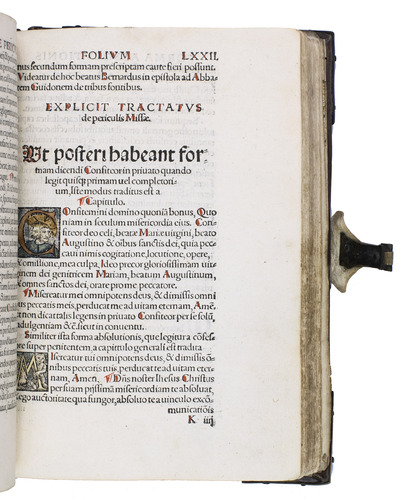 FOLIVM LXXII.
nus secundum formam prescriptam caute fieri possunt.
Videatur de hoc beatus Bernardus in epistola ad Abba-
tem Guidonem de tribus fontibus.
EXPLICIT TRACTATVS
de periculis Missæ.
Vt posteri habeant for-
mam dicendi Confiteor in priuato quando
legit quisq; primam vel completori-
um, iste modus traditus est a
¶Capitulo.
COnfitemini domino quoniã bonus, Quo
niam in seculum misericordia eius. Con
fiteor deo celi, beatæ Mariæ virgini, beato
Augustino & oibus sanctis dei, quia pec
caui nimis cogitatione, locutione, opere,
omissione, mea culpa, Ideo precor gloriosissimam vir
ginem dei genitricem Mariam, beatum Augustinum,
omnes sanctos dei, orare pro me peccatore.
¶Misereatur mei omnipotens deus, & dimissis omni
bus peccatis meis, perducat me ad vitam eternam, Amẽ.
non dicat talis legens in priuato Confiteor per se solũ,
Indulgentiam &c. sicut in conuentu.
Similiter ista forma absolutionis, que legitur a cõfes-
sore super penitentem, a capitulo generali est tradita
MIsereatur tui omnipotens deus, & dimissis oi
bus peccatis tuis, perducat te ad vitam eter
nam, Amen. ¶Dñs noster Ihesus Christus
per suam piissimã misericordiam te absoluat,
& ego auctoritate qua fungor, absoluo te a vinculo excõ-
municatiõis
K iiij